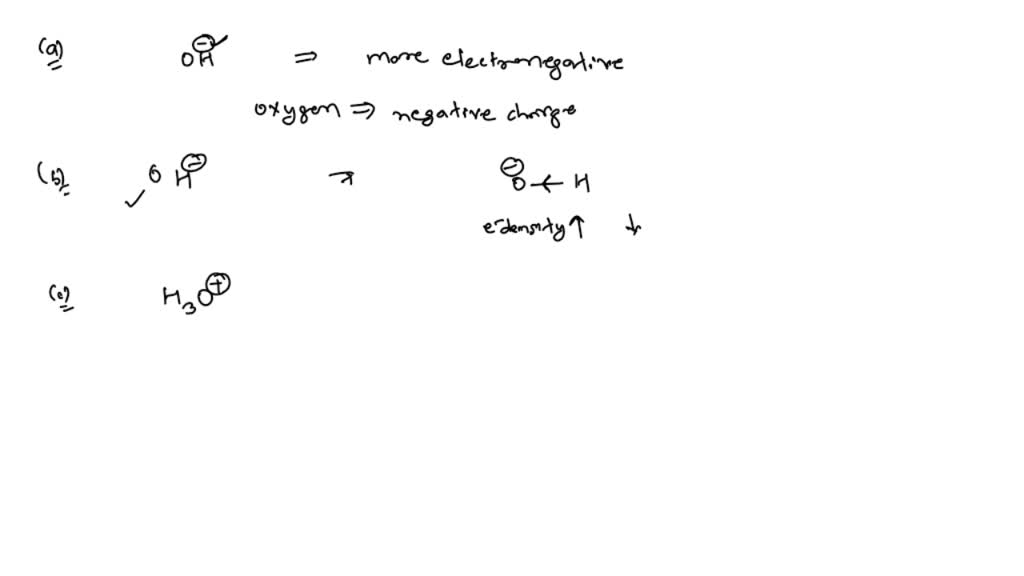 (a) OH⊖ ✓ ⇒ more electronegative
oxygen ⇒ negative charge
(b) ✓ O H⊖ → ⊖O ← H
e⁻density ↑ ↓
(c) H₃O⊕